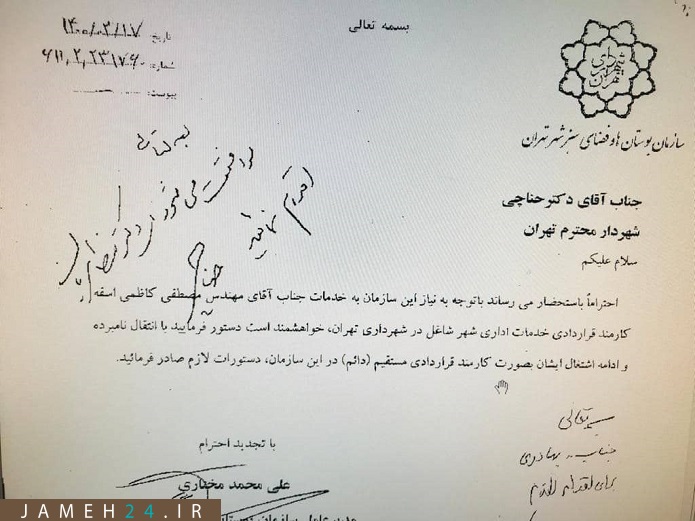 بسمه تعالی
تاریخ: ۱۴۰۰/۳/۱۷
شماره:
پیوست:
سازمان بوستان ها و فضای سبز شهر تهران
جناب آقای دکتر حناچی
شهردار محترم تهران
سلام علیکم
احتراماً باستحضار می رساند باتوجه به نیاز این سازمان به خدمات جناب آقای مهندس مصطفی کاظمی اسفه
کارمند قراردادی خدمات اداری شهر شاغل در شهرداری تهران، خواهشمند است دستور فرمایید با انتقال نامبرده
و ادامه اشتغال ایشان بصورت کارمند قراردادی مستقیم (دائم) در این سازمان، دستورات لازم صادر فرمائید.
با تجدید احترام
علی محمد مختاری
مدیر عامل سازمان
بسمه تعالی
موافقت می شود
اقدام نمائید
بسمه تعالی
جناب بهادری
برای اقدام لازم
JAMEH24.IR